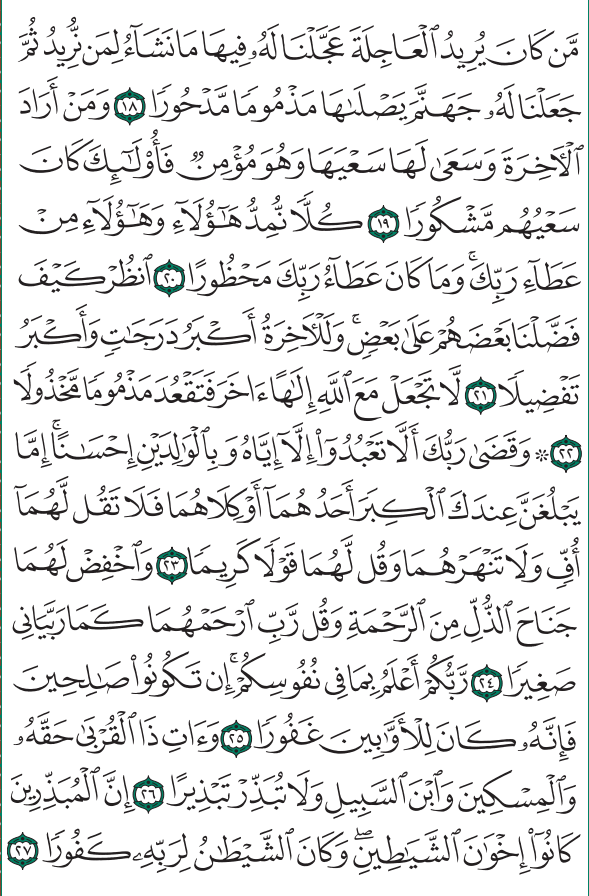 مَّن كَانَ يُرِيدُ ٱلۡعَاجِلَةَ عَجَّلۡنَا لَهُۥ فِيهَا مَا نَشَآءُ لِمَن نُّرِيدُ ثُمَّ
جَعَلۡنَا لَهُۥ جَهَنَّمَ يَصۡلَىٰهَا مَذۡمُومٗا مَّدۡحُورٗا ١٨ وَمَنۡ أَرَادَ
ٱلۡأٓخِرَةَ وَسَعَىٰ لَهَا سَعۡيَهَا وَهُوَ مُؤۡمِنٞ فَأُوْلَٰٓئِكَ كَانَ
سَعۡيُهُم مَّشۡكُورٗا ١٩ كُلّٗا نُّمِدُّ هَٰٓؤُلَآءِ وَهَٰٓؤُلَآءِ مِنۡ
عَطَآءِ رَبِّكَۚ وَمَا كَانَ عَطَآءُ رَبِّكَ مَحۡظُورًا ٢٠ ٱنظُرۡ كَيۡفَ
فَضَّلۡنَا بَعۡضَهُمۡ عَلَىٰ بَعۡضٖۚ وَلَلۡأٓخِرَةُ أَكۡبَرُ دَرَجَٰتٖ وَأَكۡبَرُ
تَفۡضِيلٗا ٢١ لَّا تَجۡعَلۡ مَعَ ٱللَّهِ إِلَٰهًا ءَاخَرَ فَتَقۡعُدَ مَذۡمُومٗا مَّخۡذُولٗا
٢٢ ۞ وَقَضَىٰ رَبُّكَ أَلَّا تَعۡبُدُوٓاْ إِلَّآ إِيَّاهُ وَبِٱلۡوَٰلِدَيۡنِ إِحۡسَٰنًاۚ إِمَّا
يَبۡلُغَنَّ عِندَكَ ٱلۡكِبَرَ أَحَدُهُمَآ أَوۡ كِلَاهُمَا فَلَا تَقُل لَّهُمَآ
أُفّٖ وَلَا تَنۡهَرۡهُمَا وَقُل لَّهُمَا قَوۡلٗا كَرِيمٗا ٢٣ وَٱخۡفِضۡ لَهُمَا
جَنَاحَ ٱلذُّلِّ مِنَ ٱلرَّحۡمَةِ وَقُل رَّبِّ ٱرۡحَمۡهُمَا كَمَا رَبَّيَانِي
صَغِيرٗا ٢٤ رَّبُّكُمۡ أَعۡلَمُ بِمَا فِي نُفُوسِكُمۡۚ إِن تَكُونُواْ صَٰلِحِينَ
فَإِنَّهُۥ كَانَ لِلۡأَوَّٰبِينَ غَفُورٗا ٢٥ وَءَاتِ ذَا ٱلۡقُرۡبَىٰ حَقَّهُۥ
وَٱلۡمِسۡكِينَ وَٱبۡنَ ٱلسَّبِيلِ وَلَا تُبَذِّرۡ تَبۡذِيرًا ٢٦ إِنَّ ٱلۡمُبَذِّرِينَ
كَانُوٓاْ إِخۡوَٰنَ ٱلشَّيَٰطِينِۖ وَكَانَ ٱلشَّيۡطَٰنُ لِرَبِّهِۦ كَفُورٗا ٢٧